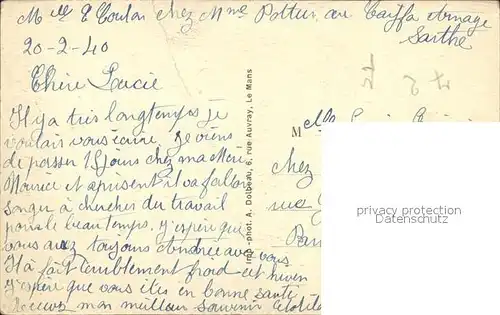 Mlle C Toutan chez Mme Pottier au Caiffa Arnage
Sarthe
20-2-40
Chère Lucie
Il y a très longtemps je
voulais vous écrire. Je viens
de passer 15 jours chez ma Mère
Maurice et a présent il va falloir
songer à chercher du travail
pour le beau temps. J'espère que
vous avez toujours Andrée avec vous
Il a fait terriblement froid cet hiver
J'espère que vous êtes en bonne santé
Recevez mon meilleur souvenir
Imp.-phot. A. Dolbeau, 6, rue Auvray, Le Mans
M elle
chez
rue
privacy protection
Datenschutz